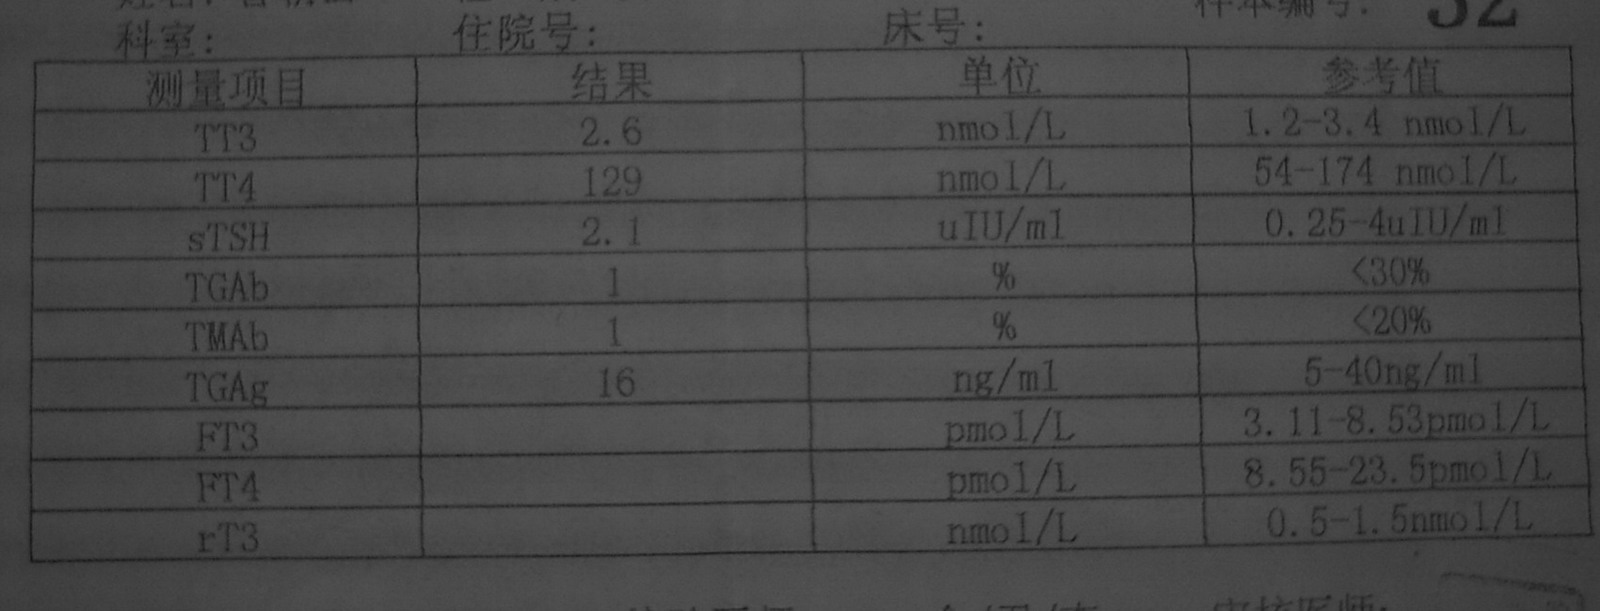 科室: 住院号: 床号: 52
测量项目 结果 单位 参考值
TT3 2.6 nmol/L 1.2-3.4 nmol/L
TT4 129 nmol/L 54-174 nmol/L
sTSH 2.1 uIU/ml 0.25-4uIU/ml
TGAb 1 % <30%
TMAb 1 % <20%
TGAg 16 ng/ml 5-40ng/ml
FT3 pmol/L 3.11-8.53pmol/L
FT4 pmol/L 8.55-23.5pmol/L
rT3 nmol/L 0.5-1.5nmol/L